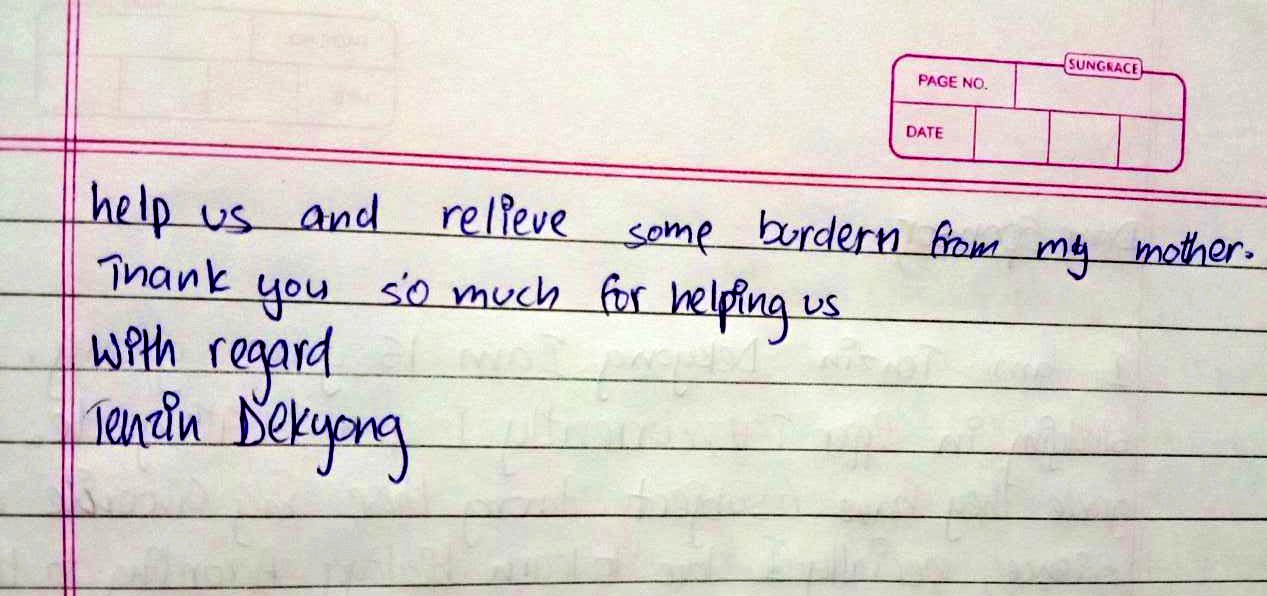 SUNGRACE
PAGE NO.
DATE
help us and relieve some bordern from my mother.
Thank you so much for helping us
with regard
Tenzin Dekyong